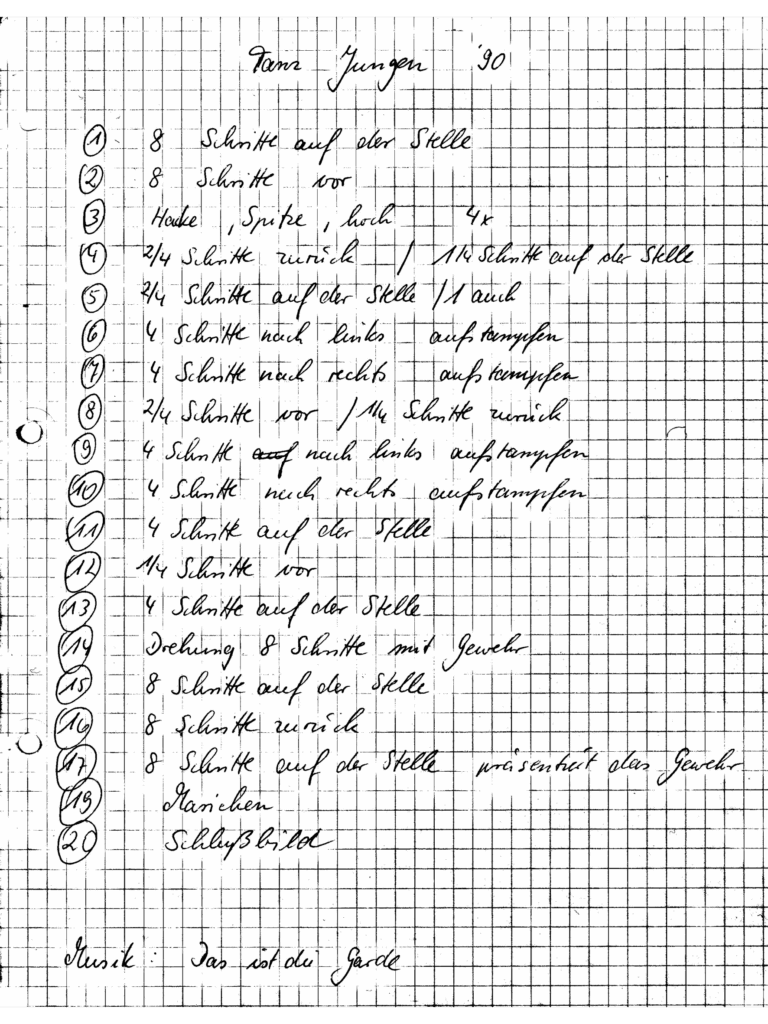 Tanz Jungen '90
① 8 Schritte auf der Stelle
② 8 Schritte vor
③ Hacke, Spitze, hoch 4x
④ 2/4 Schritte zurück / 1/4 Schritte auf der Stelle
⑤ 2/4 Schritte auf der Stelle / 1 auch
⑥ 4 Schritte nach links aufstampfen
⑦ 4 Schritte nach rechts aufstampfen
⑧ 2/4 Schritte vor / 1/4 Schritte zurück
⑨ 4 Schritte auf nach links aufstampfen
⑩ 4 Schritte nach rechts aufstampfen
⑪ 4 Schritte auf der Stelle
⑫ 1/4 Schritte vor
⑬ 4 Schritte auf der Stelle
⑭ Drehung 8 Schritte mit Gewehr
⑮ 8 Schritte auf der Stelle
⑯ 8 Schritte zurück
⑰ 8 Schritte auf der Stelle präsentiert das Gewehr
⑲ Mariechen
⑳ Schlußbild
Musik: Das ist die Garde